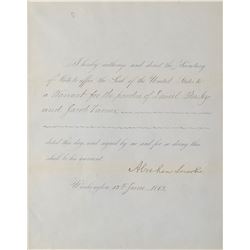 I hereby authorize and direct the Secretary
of State to affix the Seal of the United States to
a Warrant for the pardon of Daniel
and Jacob Varner
dated this day and signed by me and for so doing this
shall be his warrant
Abraham Lincoln
Washington 13th June, 1863.